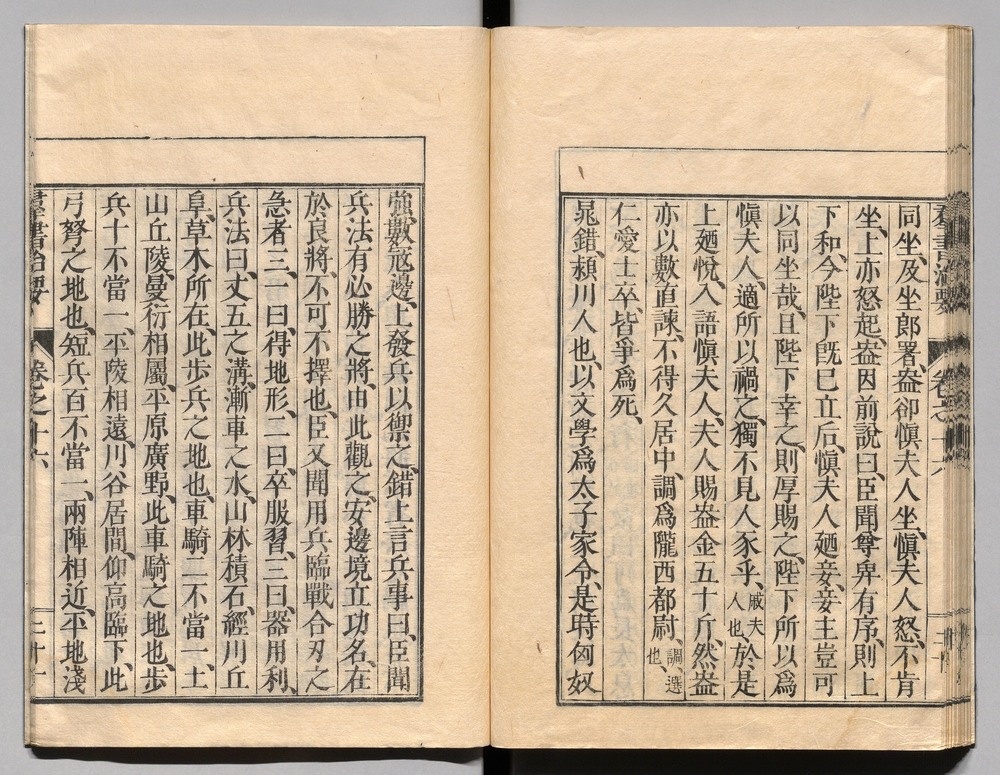 羣書治要 卷之十六
同坐、及坐郎署、盎卻愼夫人坐、愼夫人怒、不肯
坐、上亦怒起、盎因前說曰、臣聞尊卑有序、則上
下和、今陛下旣已立后、愼夫人廼妾、妾主豈可
以同坐哉、且陛下幸之、則厚賜之、陛下所以爲
愼夫人、適所以禍之、獨不見人豕乎、戚夫人也、於是
上廼悅、入語愼夫人、夫人賜盎金五十斤、然盎
亦以數直諫、不得久居中、調爲隴西都尉、調、選也、
仁愛士卒、皆爭爲死、
晁錯、潁川人也、以文學爲太子家令、是時匈奴
強、數寇邊、上發兵以禦之、錯上言兵事曰、臣聞
兵法有必勝之將、由此觀之、安邊境立功名、在
於良將、不可不擇也、臣又聞用兵臨戰合刃之
急者三、一曰、得地形、二曰、卒服習、三曰、器用利、
兵法曰、丈五之溝、漸車之水、山林積石、經川丘
阜、草木所在、此步兵之地也、車騎二不當一、土
山丘陵、曼衍相屬、平原廣野、此車騎之地也、步
兵十不當一、平陵相遠、川谷居間、仰高臨下、此
弓弩之地也、短兵百不當一、兩陣相近、平地淺
羣書治要 卷之十六 二十一